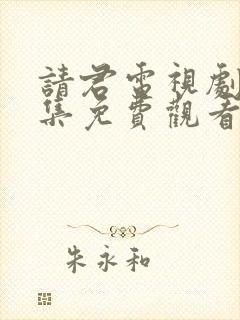 請君電視劇
集免費觀看
朱永和